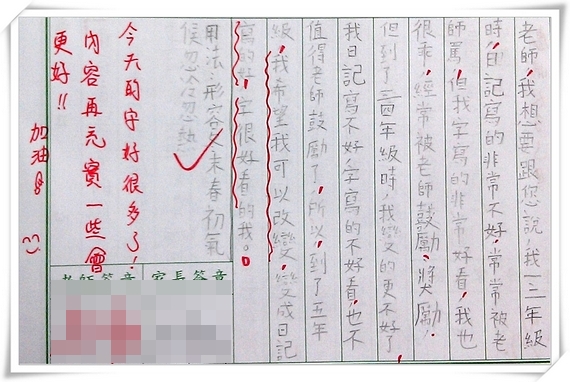 老師,我想要跟您說,我一二年級
時,日記寫的非常不好,常常被老
師罵,但我字寫的非常好看,我也
很乖,經常被老師鼓勵、獎勵.
但到了三四年級時,我變的更不好了,
我日記寫不好,字寫的不好看,也不
值得老師鼓勵了,所以,到了五年
級,我希望我可以改變,變成日記
寫的好,字很好看的我。
用法:形容冬末春初氣
候忽冷忽熱
今天的字好很多了!
內容再充實一些會
更好!!
加油
老師簽章
家長簽章